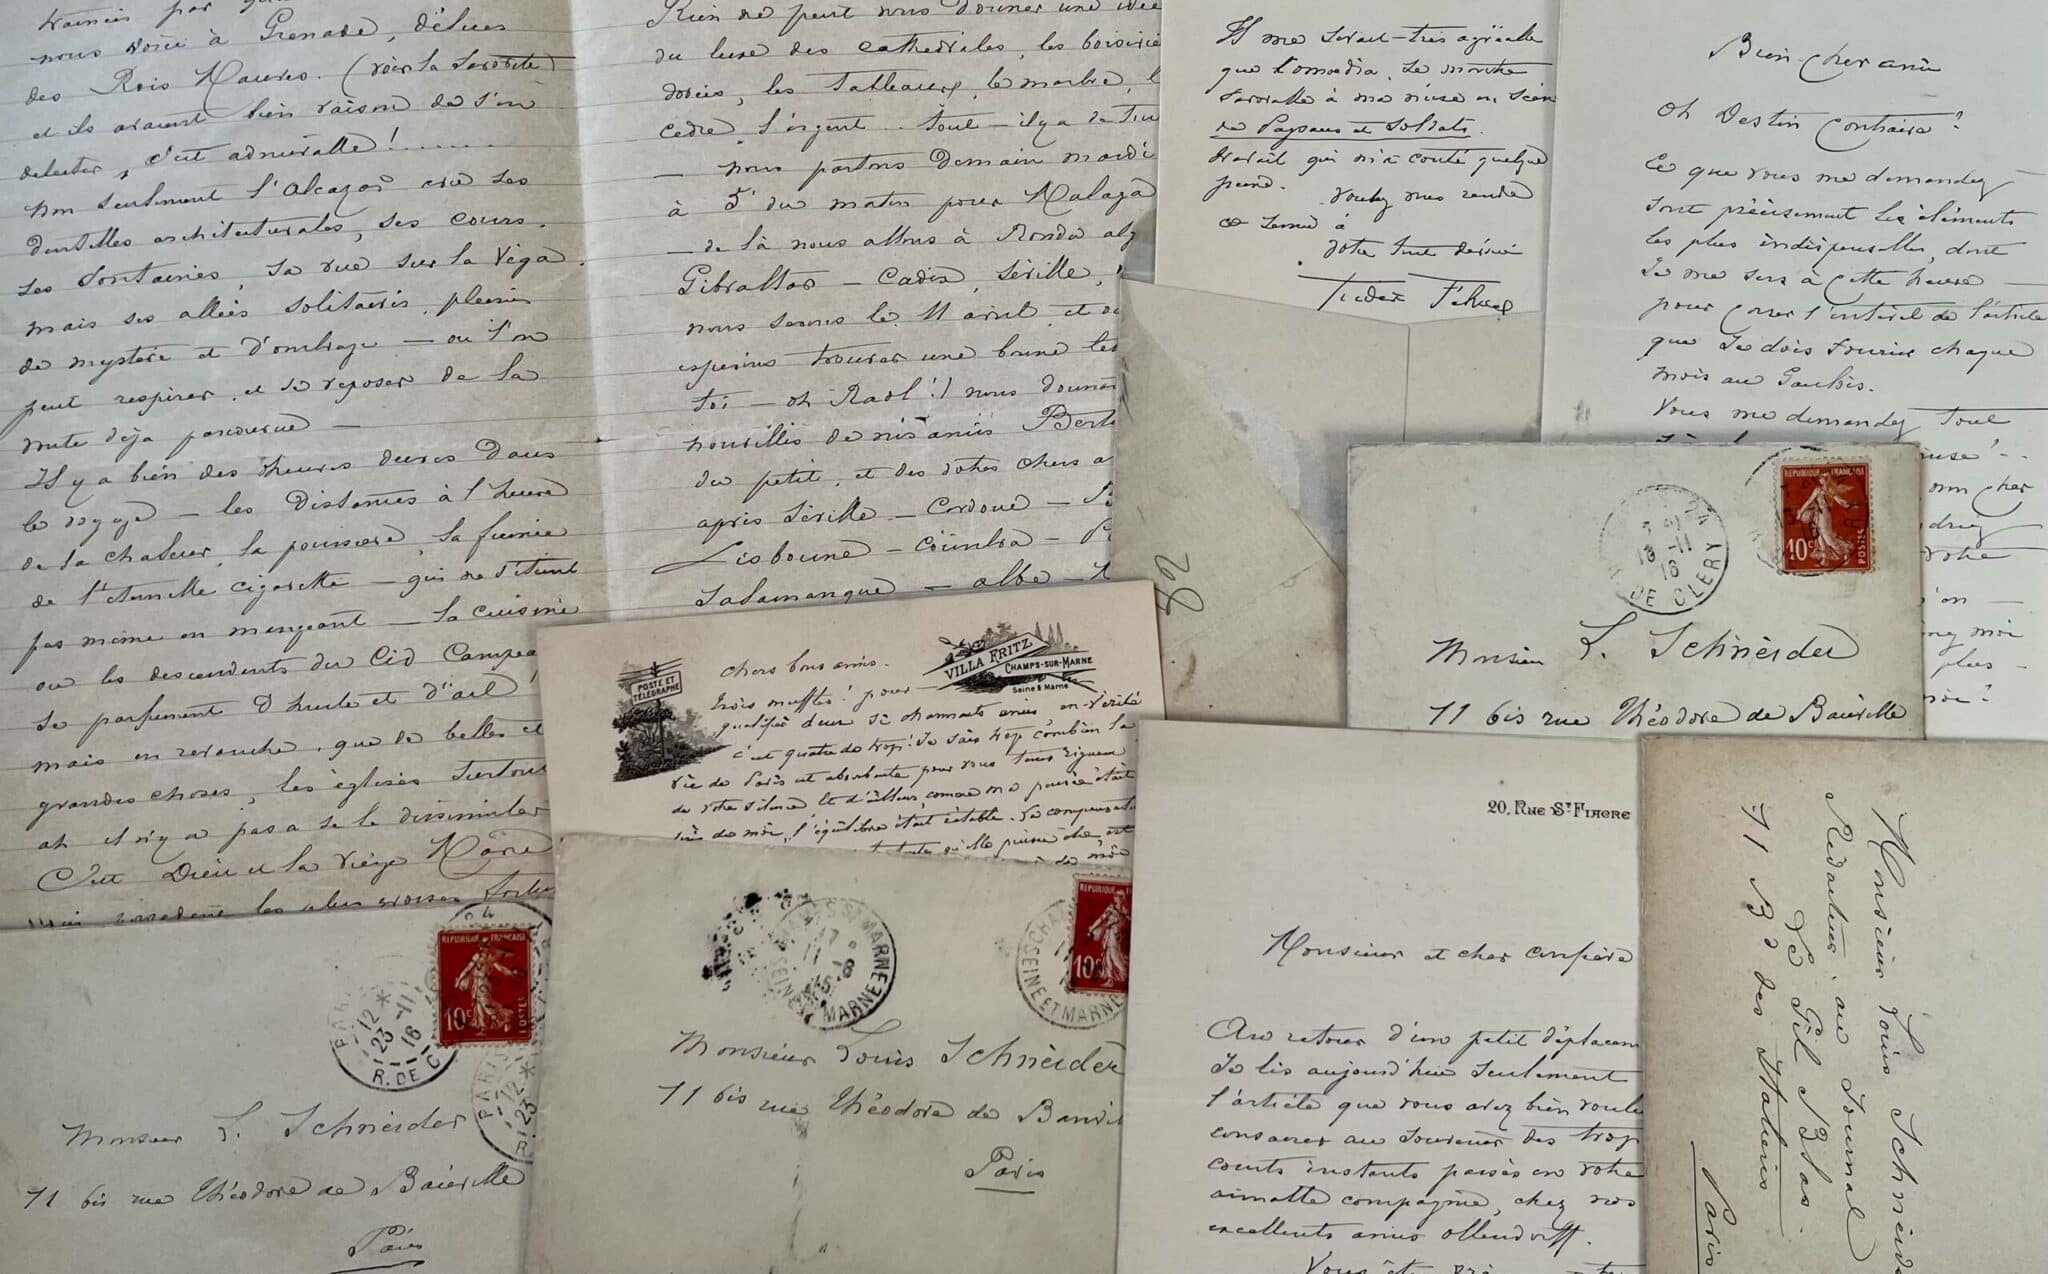 nous voici à Grenade, délices
des Rois Maures. (voir la Favorite)
et ils avaient bien raison de s'en
délecter, c'est admirable!......
non seulement l'Alcazar avec ses
dentelles architecturales, ses cours,
ses fontaines, sa vue sur la Véga
mais ses allées solitaires, pleines
de mystère et d'ombrage — où l'on
peut respirer, et se reposer de la
route déjà parcourue —
Il y a bien des heures dures dans
le voyage — les distances à l'heure
de la chaleur, la poussière, la fumée
de l'éternelle cigarette — qui ne s'éteint
pas même en mangeant — la cuisine
où les descendants du Cid Campea
se parfument d'huile et d'ail!
mais en revanche, que de belles et
grandes choses, les églises surtout
ah il n'y a pas à se le dissimuler
C'est Dieu et la Vierge Marie
qui possèdent les plus grosses
Rien ne peut nous donner une idée
du luxe des cathédrales, les boiserie
dorées, les tableaux, le marbre, l
cèdre, l'argent.. tout — il y a de tou
— nous partons demain mardi
à 5h du matin pour Malaga
— de là nous allons à Ronda alg
Gibraltar — Cadix, Séville,
nous serons le 11 avril et
espérons trouver une bonne let
toi — oh Raol!! nous donnan
nouvelles de nos amis Bert
du petit, et des votres chers a
après Séville — Cordoue —
Lisbonne — Coïmbra —
Salamanque — albe —
Il me serait très agréable
que Comoedia, se montre
favorable à ma mise en scèn
de Paysans et Soldats.
travail qui m'a couté quelque
peine.
Voulez vous rendre
ce service à
votre tout dévoué
Bien cher ami
Oh Destin contraire!
Ce que vous me demandez
sont précisément les éléments
les plus indispensables, dont
je me sers à cette heure —
pour corser l'intérêt de l'article
que je dois fournir chaque
mois au Gaulois.
Vous me demandez tout
POSTE ET
TÉLÉGRAPHE
VILLA FRITZ
CHAMPS-SUR-MARNE
Seine & Marne
Chers bons amis.
Trois mufles! pour
qualifier deux si charmants amis, en vérité
c'est quatre de trop! Je sais trop combien la
vie de Paris est absorbante pour vous tenir rigueur
de votre silence, et d'ailleurs, comme ma pensée était
près de moi, l'équilibre était établi. La compensat
REPUBLIQUE FRANÇAISE
10c POSTES
DE CLERY
Monsieur L. Schneider
71 bis rue Théodore de Banville
REPUBLIQUE FRANÇAISE
10c POSTES
PARIS
12*
23-11
16
R. DE C
Monsieur L. Schneider
71 bis rue Théodore de Banville
Paris
REPUBLIQUE
10c
SEINE ET MARNE
Monsieur Louis Schneider
71 bis rue Théodore de Banvil
Paris
20, RUE ST-FIACRE
Monsieur et cher confrère
Au retour d'un petit déplacem
je lis aujourd'hui seulement
l'article que vous avez bien voulu
consacrer au souvenir des trop
courts instants passés en votre
aimable compagnie, chez nos
excellents amis Ollendorff.
Monsieur Louis Schneid
Rédacteur au Journal
Le Gil Blas.
71 Bd des Italiens
Paris